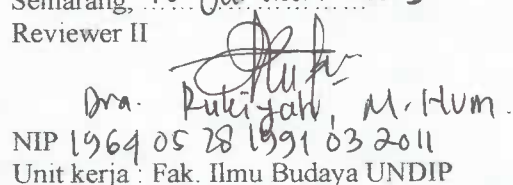 Semarang,
Reviewer II
Dra. Rukiyah, M.Hum.
NIP 1964 05 28 1991 03 2011
Unit kerja : Fak. Ilmu Budaya UNDIP